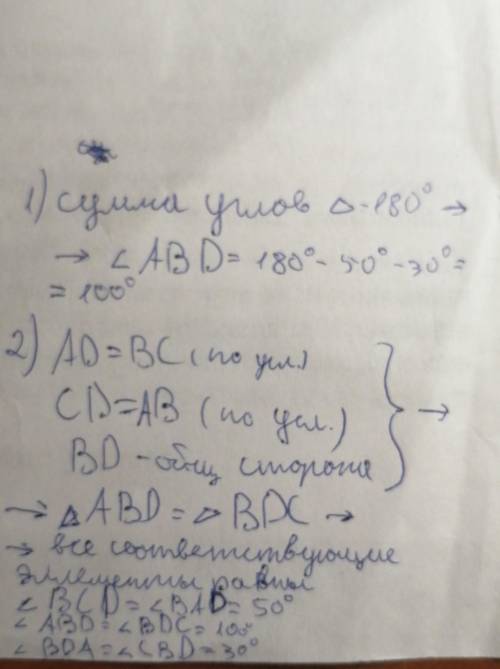 1) сумма углов △ - 180° →
→ ∠ABD = 180° - 50° - 30° =
= 100°
2) AD = BC (по усл.)
CD = AB (по усл.)
BD - общ сторона
→
→ △ABD = △BDC →
→ все соответствующие
эллементы равны
∠BCD = ∠BAD = 50°
∠ABD = ∠BDC = 100°
∠BDA = ∠CBD = 30°